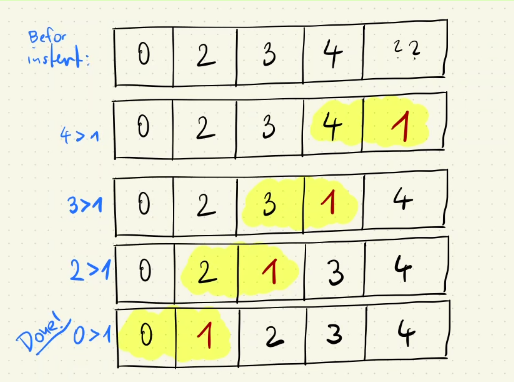 Befor
instert:
0 2 3 4 ??
4>1
0 2 3 4 1
3>1
0 2 3 1 4
2>1
0 2 1 3 4
Done!
0>1
0 1 2 3 4